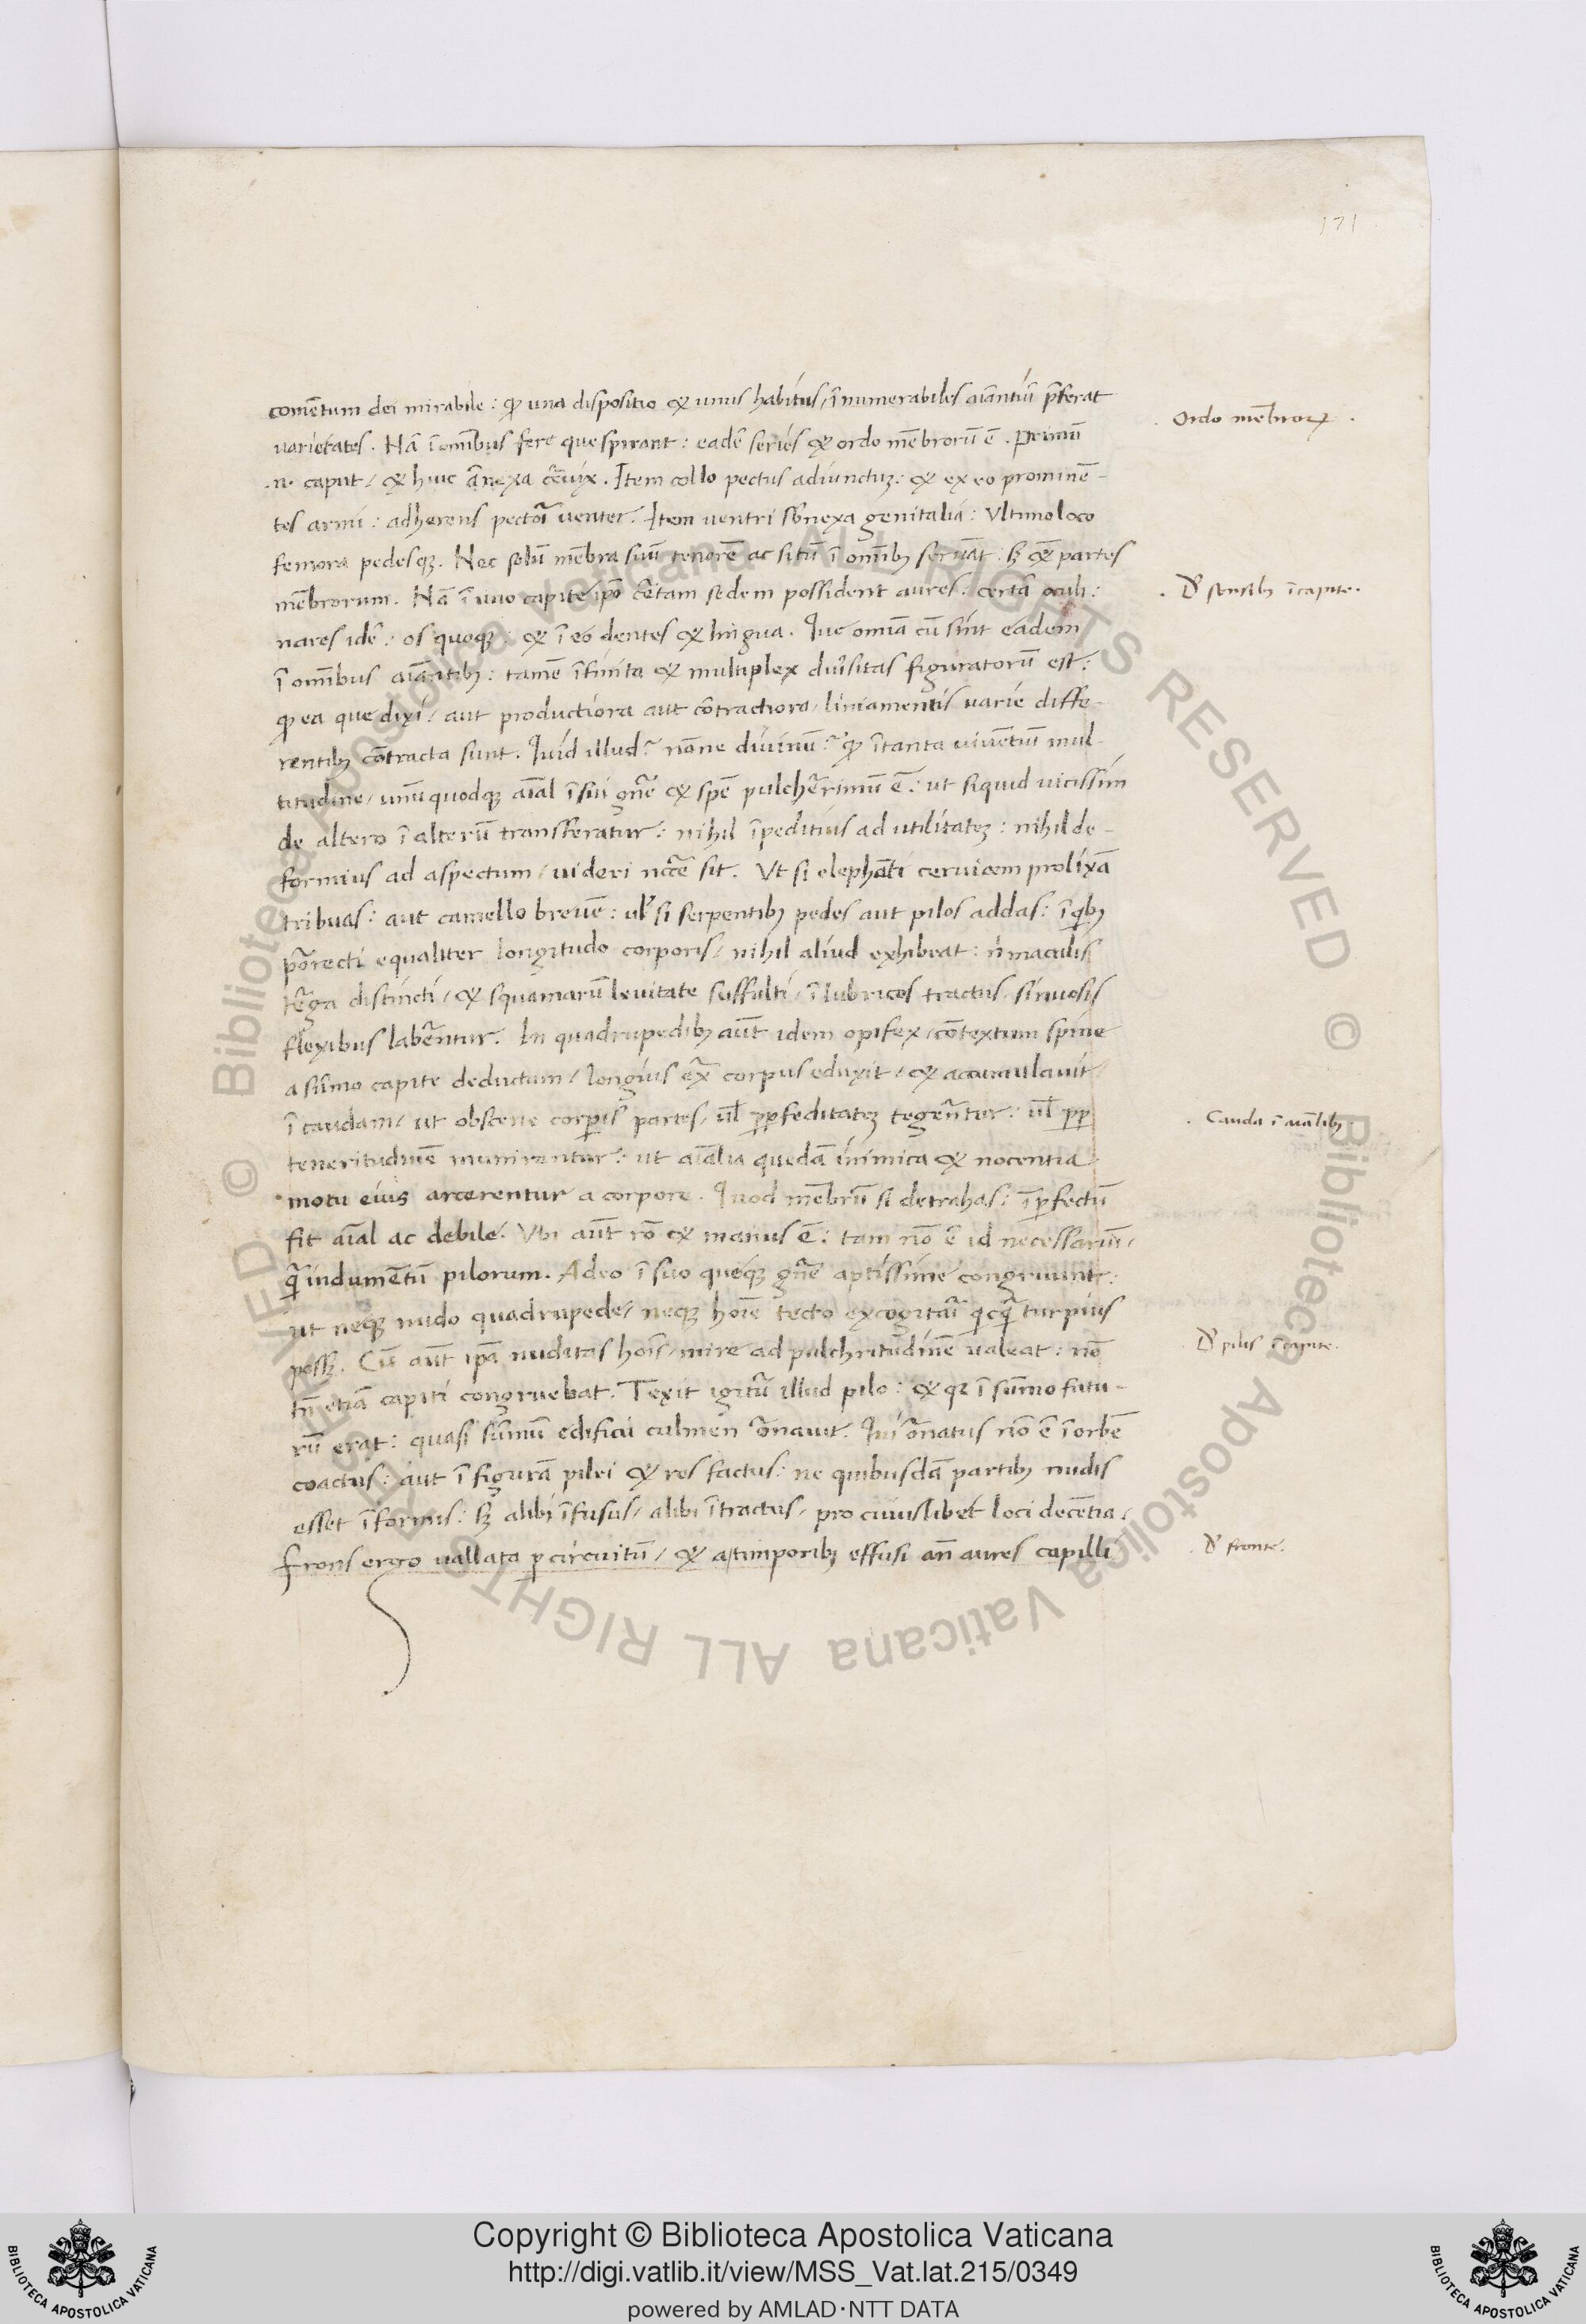 171
comẽtum dei mirabile: ꝙ una dispositio & unus habitus / ĩnumerabiles aiãntiũ p̃ferat
uarietates. Nã ĩ omĩbus fere que spirant: eadẽ series & ordo mẽbrorũ ẽ. Primũ
.n. caput / & huic ãnexa c̃uix. Item collo pectus adiunctuꝫ: & ex eo prominẽ-
tes armi: adherens pectoĩ uenter. Item uentri s̃bnexa genitalia: Vltimo loco
femora pedesqꝫ. Nec solũ mẽbra suũ tenorẽ ac sitũ ĩ omĩbꝫ seruãt: sꝫ & partes
mẽbrorum. Nã ĩ uno capite ip̃o c̃tam sedem possident aures: certã oculi:
nares idẽ: os quoqꝫ: & ĩ eo dentes & lingua. Que omĩa cũ sint eadem
ĩ omĩbus aiãntibꝫ: tamẽ ĩfinita & multiplex diũsitas figuratorũ est:
ꝙ ea que dixi / aut productiora aut cõtractiora / liniamentis uarie diffe-
rentibꝫ cõtracta sunt. Quid illud? nõne diuinũ? ꝙ ĩ tanta uiuẽtiũ mul-
titudine / unũquodqꝫ aĩal ĩ sui gñe & sp̃e pulcherrimũ ẽ: ut siquid uicissim
de altero ĩ alterũ transferatur: nihil ĩpeditius ad utilitateꝫ: nihil de-
formius ad aspectum / uideri nc̃e sit. Vt si elephãti ceruicem prolixã
tribuas: aut camello breuẽ: ul̃ si serpentibꝫ pedes aut pilos addas: ĩ qibꝫ
põrecti equaliter longitudo corporis / nihil aliud exhibeat: ñ maculis
t̃ga distincti / & squamarũ leuitate suffulti / ĩ lubricos tractus sinuosis
flexibus lab̃entur. In quadrupedibꝫ aũt idem opifex / cõtextum spine
a sũmo capite deductum / longius ex̃ corpus eduxit / & accumulauit
ĩ caudam / ut obscene corp̃is partes / ul̃ ꝓp̃ feditateꝫ tegẽrtur: ul̃ ꝓp̃
teneritudinẽ munirentur: ut aĩalia quedã inimica & nocentia
motu eius arcerentur a corpore. Quod mẽbrũ si detrahas: ĩp̃fectũ
fit aĩal ac debile. Vbi aũt rõ & manus ẽ: tam nõ ẽ id necessariũ /
q̃ indumẽtũ pilorum. Adeo ĩ suo queqꝫ gñe aptissime congruunt:
ut neqꝫ nudo quadrupede / neqꝫ hoĩe tecto excogitaĩ qicq̃ turpius
possꝫ. Cũ aũt ip̃a nuditas hoĩs / mire ad pulchritudinẽ ualeat: nõ
tñ etiã capiti congruebat. Texit igitũ illud pilo: & qꝛ ĩ sũmo futu-
rũ erat: quasi sũmũ edificii culmen õnauit. Qui õnatus nõ ẽ ĩ orbẽ
coactus: aut ĩ figurã pilei & res factus: ne quibusdã partibꝫ nudis
esset ĩformis: sꝫ alibi ĩfusus / alibi ĩtractus / pro cuiuslibet loci decẽtia.
Frons ergo uallata p circuitũ / & a timporibꝫ effusi añ aures capilli
Ordo mẽbroꝝ.
. D̃ sensibꝫ ĩ capite.
. Cauda ĩ aĩalibꝫ
. D̃ pilis ĩ capite.
. D̃ fronte.
© Biblioteca Apostolica Vaticana ALL RIGHTS RESERVED © Biblioteca Apostolica Vaticana ALL RIGHTS RESERVED
BIBLIOTECA APOSTOLICA VATICANA
Copyright © Biblioteca Apostolica Vaticana
http://digi.vatlib.it/view/MSS_Vat.lat.215/0349
powered by AMLAD·NTT DATA
BIBLIOTECA APOSTOLICA VATICANA